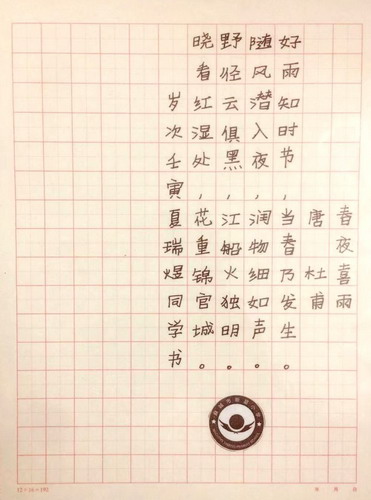 春夜喜雨
唐 杜甫
好雨知时节，当春乃发生。
随风潜入夜，润物细如声。
野径云俱黑，江船火独明。
晓看红湿处，花重锦官城。
岁次壬寅夏瑞煜同学书